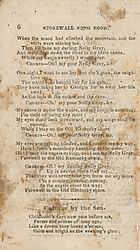 6 STONEWALL SONG BOOK.
When the moon had climbed the mountain, and the
stars were shining too,
Then I'd take my darling Nelly Gray,
And we'd float down the river in my little canoe,
While my banjo sweetly I would play.
CHORUS—Oh! my poor Nelly Gray, &c.
One night I went to see her, but she's gone, the neigh-
bors say,
The white man bound her
They have taken her to Georgia for to wear her life
away,
CHORUS—Oh! my poor Nelly Gray, &c.
My canoe is under the water, and my banjo is unstrung,
I'm tired of living any more;
My eyes shall look downward, and my songs shall be
unsung,
While I stay on the Old Kentucky shore.
CHORUS—Oh! my poor Nelly Gray, &c.
My eyes are getting blinded, and I cannot see my way,
Hark! there's somebody knocking at the door;
Oh! I hear the angels calling, and I see my Nelly Gray,
Farewell to the Old Kentucky shore.
CHORUS—Oh! my darling Nelly Gray,
Up in heaven there they say,
That they'll never take you from me any more;
I'm a coming, coming, coming,
As the angels clear the way;
Farewell to the Old Kentucky shore.
by the Sea.
Childhood's days now pass before me,
Forms and scenes of long ago;
Like a dream they hover o'er me,
Calm and bright as evening's glow;